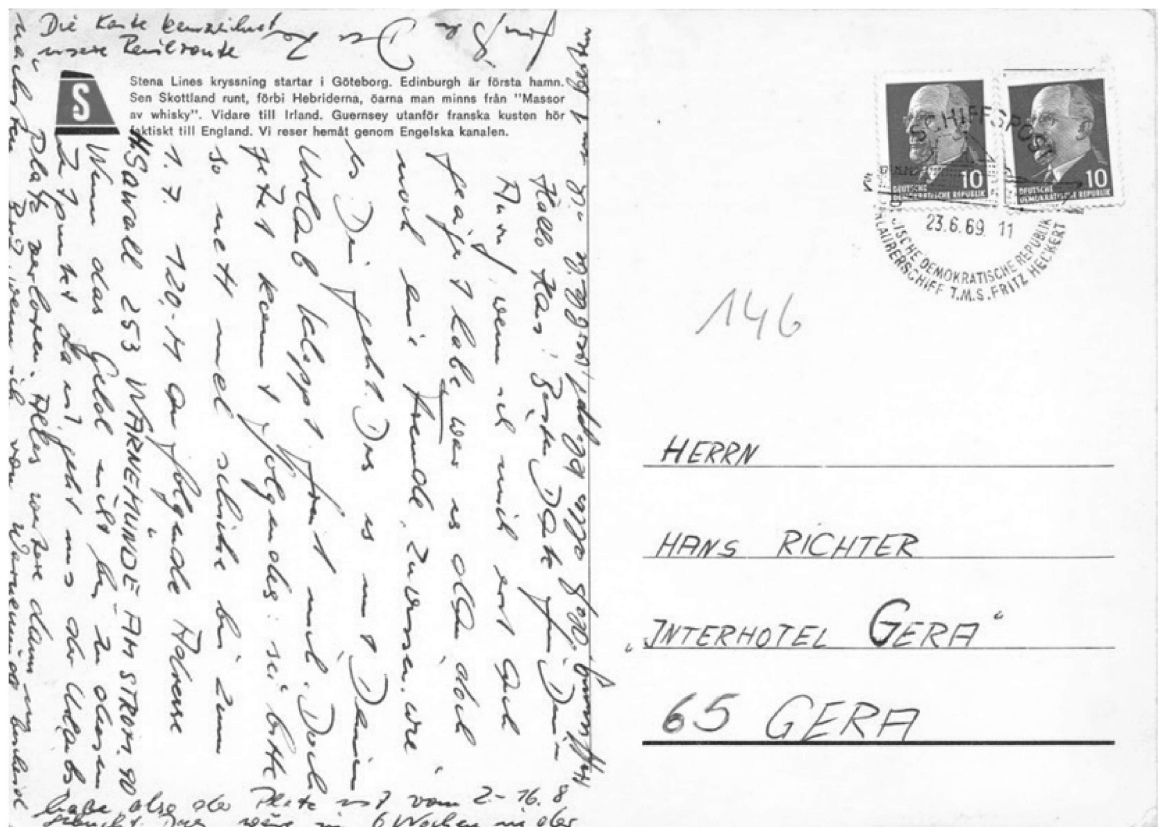 Die Karte kennzeichnet
unsere Reiseroute
S
Stena Lines kryssning startar i Göteborg. Edinburgh är första hamn.
Sen Skottland runt, förbi Hebriderna, öarna man minns från "Massor
av whisky". Vidare till Irland. Guernsey utanför franska kusten hör
faktiskt till England. Vi reser hemåt genom Engelska kanalen.
Hallo Hans! Besten Dank für Dein
Anruf, wenn ich mich erst auch
habe, war es doch
noch eine Freude, zu wissen, wie
es Dir geht. Das es mit Deinem
Urlaub klappt, freut mich. Doch
jetzt kommt folgendes: sei bitte
so nett und schicke bis zum
1.7. 120,-M an folgende Adresse
H. SAWALL 253 WARNEMÜNDE AM STROM 90
Wenn das Geld nicht bis zu diesem
Zeitpunkt da ist, geht uns der Urlaubs
platz verloren. Alles weitere dann im
nächsten Brief, wenn ich von Warnemünde Bescheid
habe, also der Platz ist vom 2.-16.8
gebucht. Das wäre in 6 Wochen in der
SCHIFFSPOST
10
DEUTSCHE
DEMOKRATISCHE REPUBLIK
10
DEUTSCHE
DEMOKRATISCHE REPUBLIK
23.6.69 11
DEMOKRATISCHE REPUBLIK
URLAUBERSCHIFF T.M.S. FRITZ HECKERT
146
HERRN
HANS RICHTER
„INTERHOTEL GERA"
65 GERA